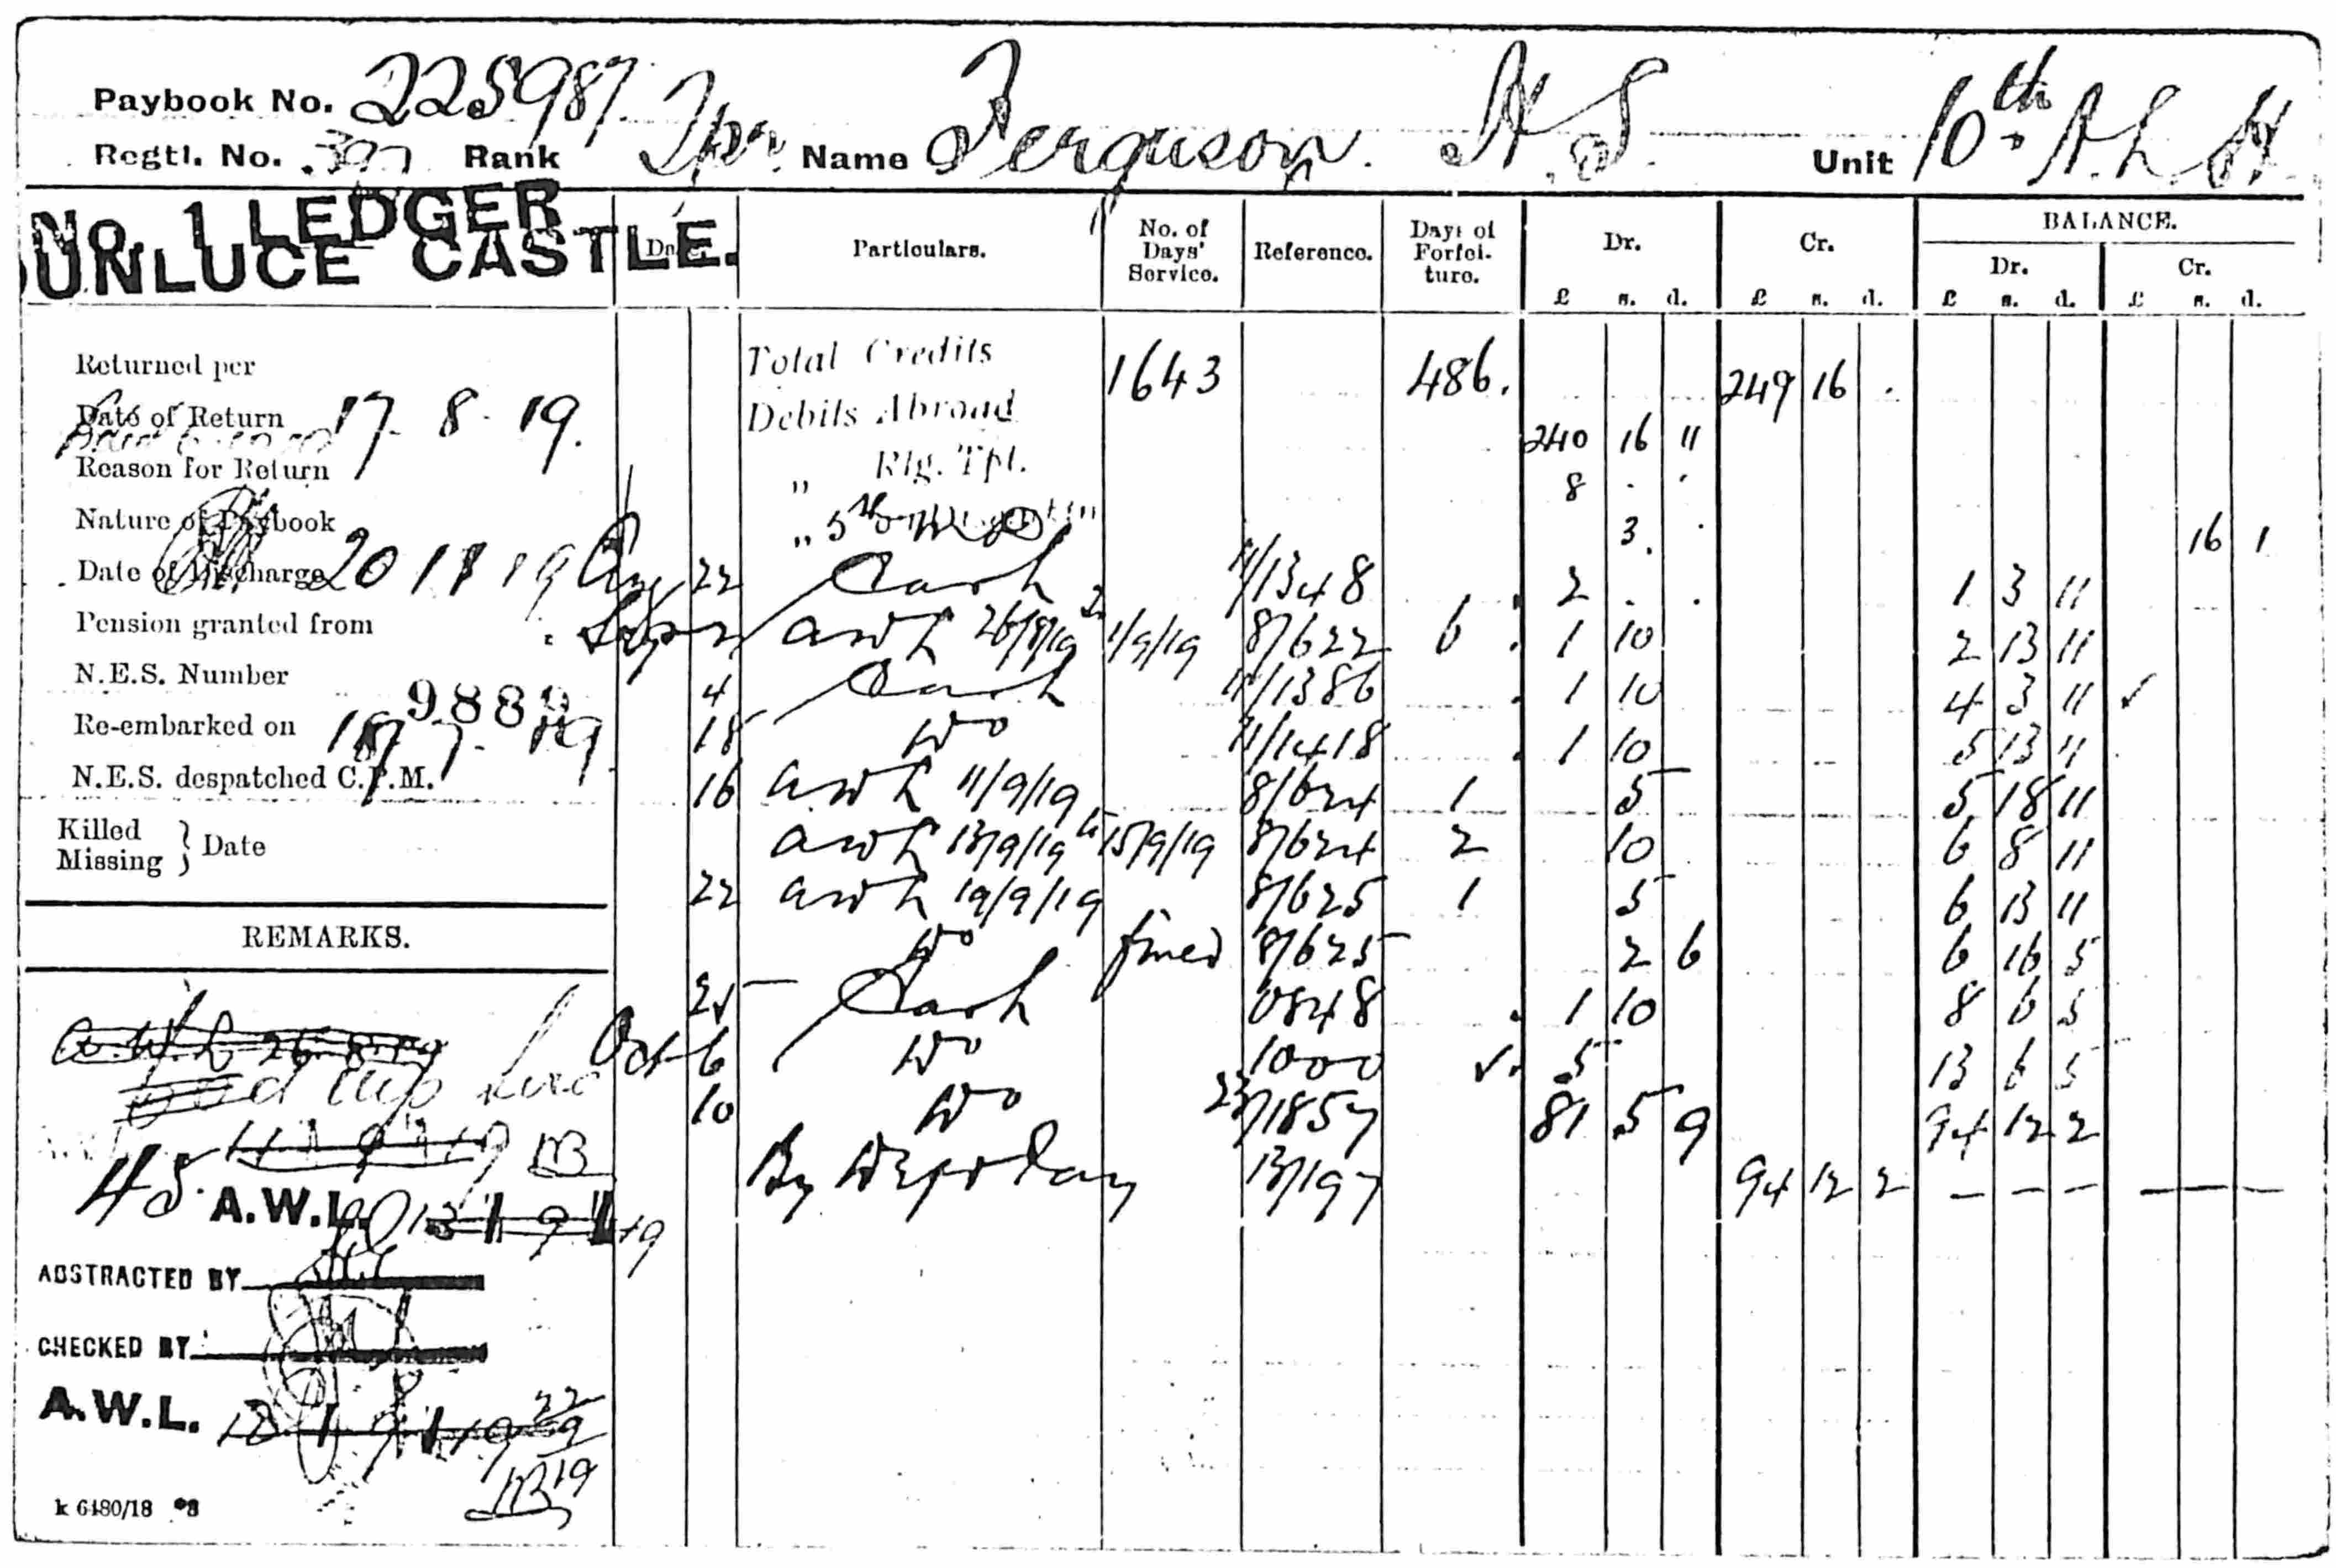 Paybook No. 225987
Regtl. No. 397 Rank Tpr. Name Ferguson. H. S. Unit 10th A. L. H.
No. 1 LEDGER
DUNLUCE CASTLE.
Date Particulars. No. of Days' Service. Reference. Days of Forfeiture. Dr. £ s. d. Cr. £ s. d. BALANCE. Dr. £ s. d. Cr. £ s. d.
Returned per
Date of Return 17. 8. 19.
Reason for Return
Nature of Paybook
Date of Discharge 20 11 19
Pension granted from
N.E.S. Number 9889
Re-embarked on 7. 19
N.E.S. despatched C.P.M.
Killed
Missing } Date
REMARKS.
A.W.L 26.8.19
45
A.W.L. 13 9 19
ABSTRACTED BY
CHECKED BY
A.W.L. 9 19
k 6480/18
Total Credits 1643 486. 249 16 .
Debits Abroad 240 16 11
„ Rlg. Tpt. 8 . .
„ 3. . 16 1
Aug 22 Cash 11/1348 2 . . 1 3 11
Sep 2 AWL 26/8/19 2 1/9/19 8/622 6 1 10 2 13 11
4 Cash 11/1386 1 10 4 3 11 ✓
18 Do 11/1418 1 10 5 13 11
16 AWL 11/9/19 8/624 1 5 5 18 11
AWL 13/9/19 to 15/9/19 8/624 2 10 6 8 11
22 AWL 19/9/19 8/625 1 5 6 13 11
Do fined 8/625 2 6 6 16 5
25 Cash 10848 1 10 8 6 5
Oct 6 Do 1000 ✓. 5 13 6 5
10 Do 23/1857 81 5 9 94 12 2
By Def Pay 13/197 94 12 2 — — — — —